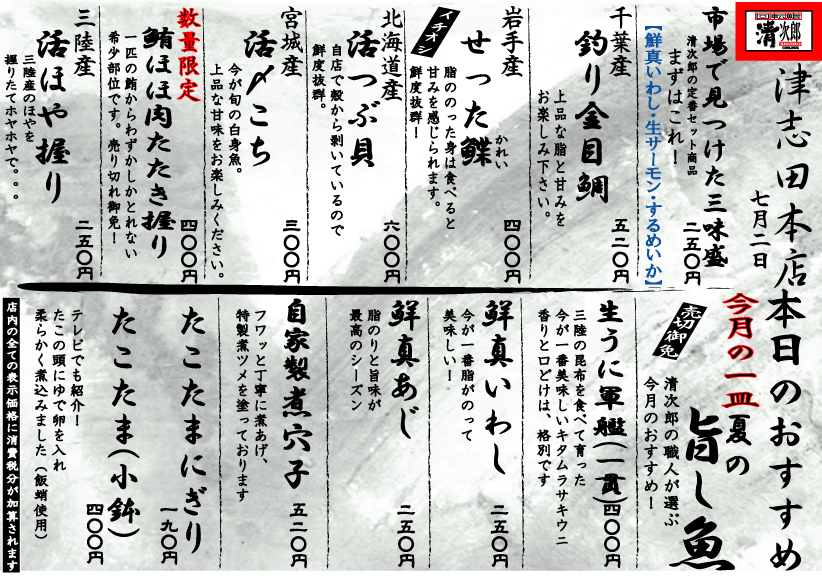 清次郎
津志田本店
七月二日
本日のおすすめ
市場で見つけた三味盛
清次郎の定番セット商品
まずはこれ！
二五〇円
【鮮真いわし・生サーモン・するめいか】
千葉産
釣り金目鯛
上品な脂と甘みを
お楽しみ下さい。
五二〇円
岩手産
イチオシ
せった鰈
かれい
脂ののった身は食べると
甘みを感じられます。
鮮度抜群！
四〇〇円
北海道産
活つぶ貝
自店で殻から剥いているので
鮮度抜群。
六〇〇円
宮城産
活〆こち
今が旬の白身魚。
上品な甘味をお楽しみください。
三〇〇円
数量限定
鮪ほほ肉たたき握り
一匹の鮪からわずかしかとれない
希少部位です。売り切れ御免！
四〇〇円
三陸産
活ほや握り
三陸産のほやを
握りたてホヤホヤで。。。
二五〇円
今月の一皿
売切御免
夏の
旨し魚
清次郎の職人が選ぶ
今月のおすすめ！
生うに軍艦（一貫）
三陸の昆布を食べて育った
今が一番美味しいキタムラサキウニ
香りと口どけは、格別です
四〇〇円
鮮真いわし
今が一番脂がのって
美味しい！
二五〇円
鮮真あじ
脂のりと旨味が
最高のシーズン
二五〇円
自家製煮穴子
フワッと丁寧に煮あげ、
特製煮ツメを塗っております
五二〇円
たこたまにぎり
一九〇円
たこたま（小鉢）
テレビでも紹介！
たこの頭にゆで卵を入れ
柔らかく煮込みました（飯蛸使用）
四〇〇円
店内の全ての表示価格に消費税分が加算されます